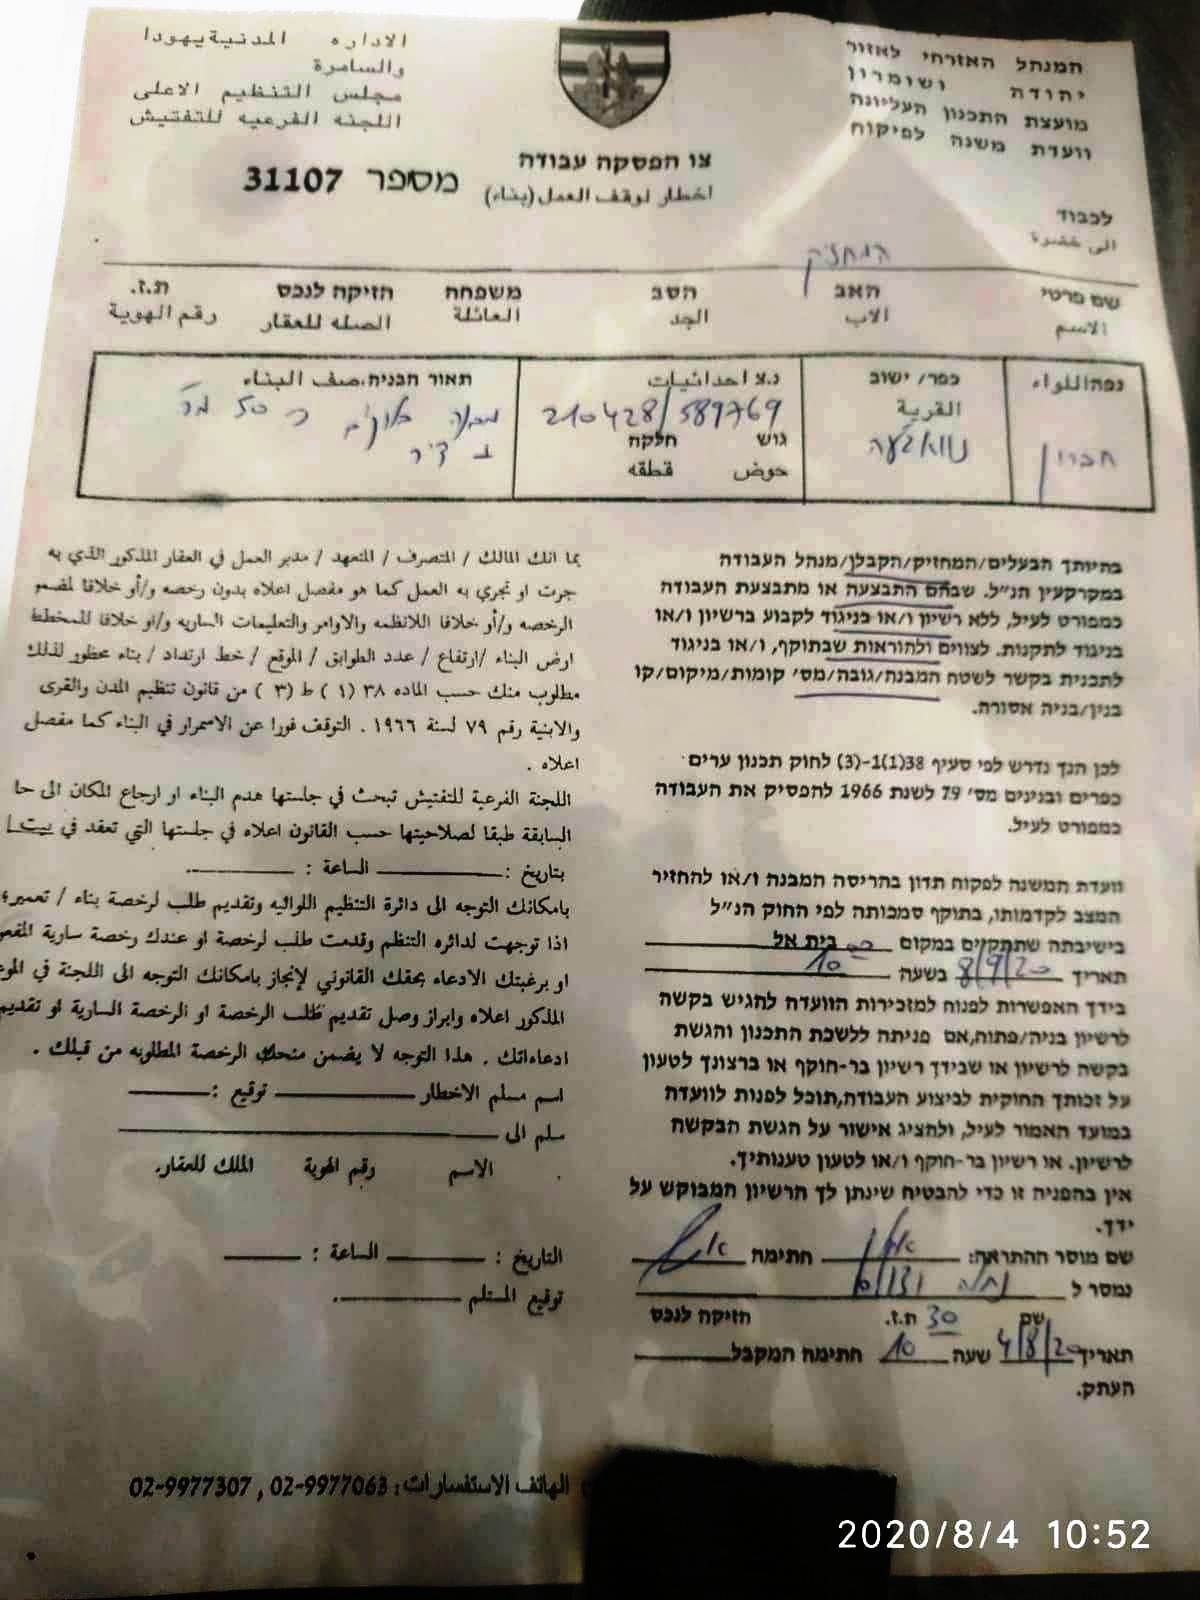 המנהל האזרחי לאזור
יהודה ושומרון
מועצת התכנון העליונה
וועדת משנה לפיקוח
الاداره المدنية يهودا
والسامرة
مجلس التنظيم الاعلى
اللجنه الفرعيه للتفتيش
צו הפסקה עבודה
اخطار لوقف العمل (بناء)
מספר 31107
לכבוד
الى حضرة
המחזיק
שם פרטי האב הסב משפחה חזיקה לנכס ת.ז.
الاسم الاب الجد العائلة الصله للعقار رقم الهوية
נפה اللواء
חברון
כפר/ ישוב
القرية
נ.צ احداثيات
210428/589769
גוש חלקה
حوض قطقه
תאור הבניה. صف البناء
מבנה 50
בהיותך הבעלים/המחזיק/הקבלן/מנהל העבודה
במקרקעין הנ״ל. שבהם התבצעה או מתבצעת העבודה
כמפורט לעיל, ללא רשיון ו/או בניגוד לקבוע ברשיון ו/או
בניגוד לתקנות. לצווים ולהוראות שבתוקף, ו/או בניגוד
לתכנית בקשר לשטח המבנה/גובה/מס׳ קומות/מיקום/קו
בנין/בניה אסורה.
לכן הנך נדרש לפי סעיף 38(1)-(3) לחוק תכנון ערים
כפרים ובנינים מס׳ 79 לשנת 1966 להפסיק את העבודה
כמפורט לעיל.
וועדת המשנה לפקוח תדון בהריסה המבנה ו/או להחזיר
המצב לקדמותו, בתוקף סמכותה לפי החוק הנ״ל
בישיבתה שתתקיים במקום בית אל
תאריך 8/9/20 בשעה 10
בידך האפשרות לפנות למזכירות הוועדה להגיש בקשה
לרשיון בניה/פתוח,אם פניתה ללשכת התכנון והגשת
בקשה לרשיון או שבידך רשיון בר-חוקף או ברצונך לטעון
על זכותך החוקית לביצוע העבודה,תוכל לפנות לוועדה
במועד האמור לעיל, ולהציג אישור על הגשת הבקשה
לרשיון. או רשיון בר-חוקף ו/או לטעון טענותיך.
אין בהפניה זו כדי להבטיח שינתן לך הרשיון המבוקש על
ידך.
שם מוסר ההתראה: חתימה
נמסר ל
שם ת.ז. 30 חזיקה לנכס
תאריך 4/8/20 שעה 10 חתימה המקבל
העתק.
بما انك المالك / المتصرف / المتعهد / مدير العمل في العقار المذكور الذي به
جرت او تجري به العمل كما هو مفصل اعلاه بدون رخصه و/أو خلافا لمضمم
الرخصه و/أو خلافا للانظمه والاوامر والتعليمات الساريه و/او خلافا للمخطط
ارض البناء /ارتفاع / عدد الطوابق / الموقع / خط ارتداد / بناء محظور لذلك
مطلوب منك حسب الماده ٣٨ (١) ط (٣) من قانون تنظيم المدن والقرى
والابنية رقم ٧٩ لسنة ١٩٦٦ . التوقف فورا عن الاسمرار في البناء كما مفصل
اعلاه .
اللجنة الفرعية للتفتيش تبحث في جلستها هدم البناء او ارجاع المكان الى حا
السابقة طبقا لصلاحيتها حسب القانون اعلاه في جلستها التي تعقد في بيت
بتاريخ : الساعة :
بامكانك التوجه الى دائرة التنظيم اللوائيه وتقديم طلب لرخصة بناء / تعمير؛
اذا توجهت لدائره التنظم وقدمت طلب لرخصة او عندك رخصة سارية المفعو
او برغبتك الادعاء بحقك القانوني لإنجاز بامكانك التوجه الى اللجنة في الموء
المذكور اعلاه وابراز وصل تقديم طلب الرخصة او الرخصة السارية او تقديم
ادعاءاتك . هذا التوجه لا يضمن منحك الرخصة المطلوبه من قبلك .
اسم مسلم الاخطار توقيع :
سلم الى
الاسم رقم الهوية الملك للعقار.
التاريخ : الساعة :
توقيع المستلم
الهاتف الاستفسارات: 02-9977063 , 02-9977307
2020/8/4 10:52